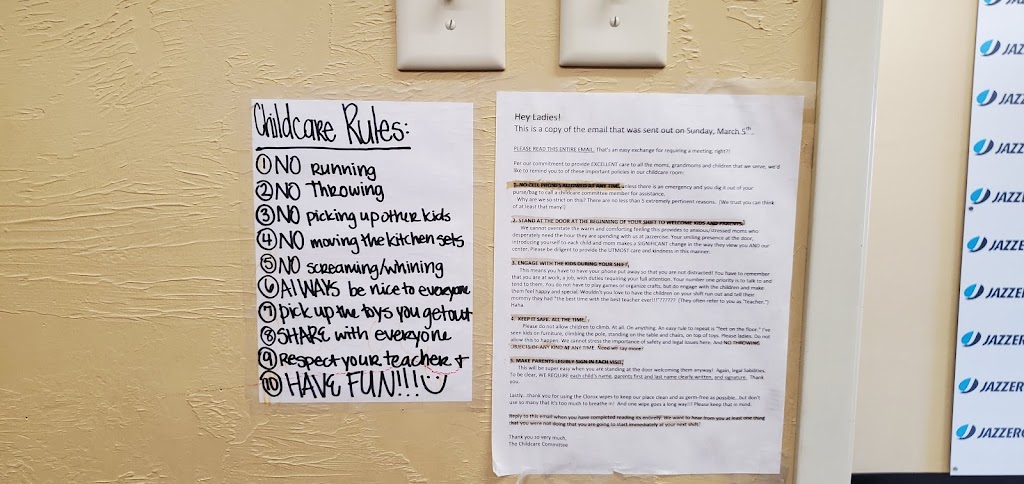 Childcare Rules:
① NO running
② NO Throwing
③ NO picking up other kids
④ NO moving the kitchen sets
⑤ NO screaming/whining
⑥ AlWAYS be nice to everyone
⑦ pick up the toys you get out
⑧ SHARE with everyone
⑨ Respect your teacher +
⑩ HAVE FUN!!!
Hey Ladies!
This is a copy of the email that was sent out on Sunday, March 5th.
PLEASE READ THIS ENTIRE EMAIL. That's an easy exchange for requiring a meeting, right??
Per our commitment to provide EXCELLENT care to all the moms, grandmoms and children that we serve, we'd
like to remind you to of these important policies in our childcare room:
1. NO CELL PHONES ALLOWED AT ANY TIME, unless there is an emergency and you dig it out of your
purse/bag to call a childcare committee member for assistance.
Why are we so strict on this? There are no less than 5 extremely pertinent reasons. (We trust you can think
of at least that many!)
2. STAND AT THE DOOR AT THE BEGINNING OF YOUR SHIFT TO WELCOME KIDS AND PARENTS.
We cannot overstate the warm and comforting feeling this provides to anxious/stressed moms who
desperately need the hour they are spending with us at Jazzercise. Your smiling presence at the door,
introducing yourself to each child and mom makes a SIGNIFICANT change in the way they view you AND our
center. Please be diligent to provide the UTMOST care and kindness in this manner.
3. ENGAGE WITH THE KIDS DURING YOUR SHIFT.
This means you have to have your phone put away so that you are not distracted! You have to remember
that you are at work, a job, with duties requiring your full attention. Your number one priority is to talk to and
tend to them. You do not have to play games or organize crafts, but do engage with the children and make
them feel happy and special. Wouldn't you love to have the children on your shift run out and tell their
mommy they had "the best time with the best teacher ever!!!"?????? (They often refer to you as "teacher.")
Haha.
4. KEEP IT SAFE. ALL THE TIME.
Please do not allow children to climb. At all. On anything. An easy rule to repeat is "feet on the floor," I've
seen kids on furniture, climbing the pole, standing on the table and chairs, on top of toys. Please ladies. Do not
allow this to happen. We cannot stress the importance of safety and legal issues here. And NO THROWING
OBJECTS OF ANY KIND AT ANY TIME. Need we say more?
5. MAKE PARENTS LEGIBLY SIGN IN EACH VISIT.
This will be super easy when you are standing at the door welcoming them anyway! Again, legal liabilities.
To be clear, WE REQUIRE each child's name, parents first and last name clearly written, and signature. Thank
you.
Lastly...thank you for using the Clorox wipes to keep our place clean and as germ-free as possible...but don't
use so many that it's too much to breathe in! And one wipe goes a long way!!! Please keep that in mind.
Reply to this email when you have completed reading its entirety. We want to hear from you at least one thing
that you were not doing that you are going to start immediately at your next shift.
Thank you so very much,
The Childcare Committee
JAZZ
JAZZ
JAZZ
JAZZ
JAZZE
JAZZE
JAZZE
JAZZER
JAZZERC